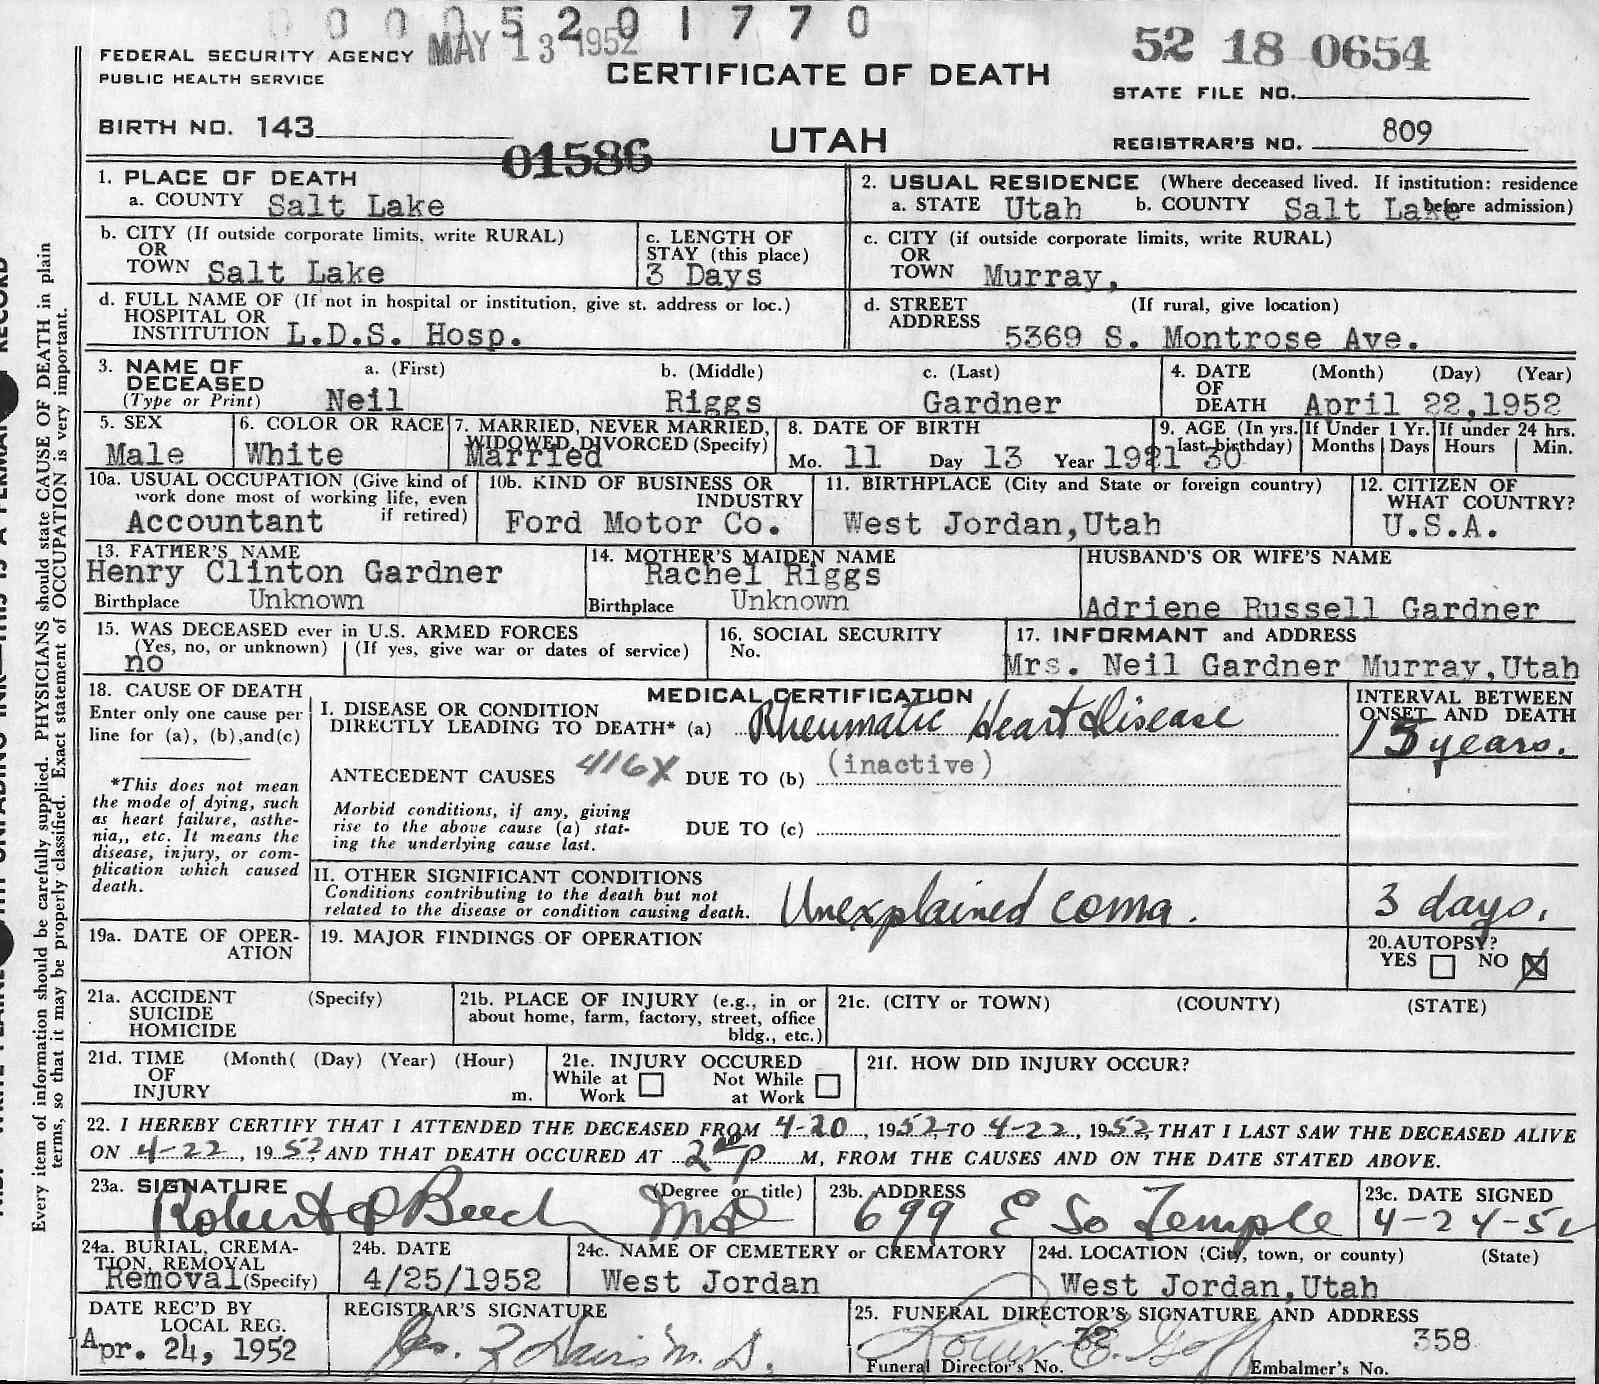 0 0 0 5 2 0 1 7 7 0
MAY 13 1952
52 18 0654
FEDERAL SECURITY AGENCY
PUBLIC HEALTH SERVICE
CERTIFICATE OF DEATH
STATE FILE NO.
BIRTH NO. 143
UTAH
REGISTRAR'S NO. 809
01586
1. PLACE OF DEATH
a. COUNTY Salt Lake
2. USUAL RESIDENCE (Where deceased lived. If institution: residence before admission)
a. STATE Utah b. COUNTY Salt Lake
b. CITY (If outside corporate limits, write RURAL)
OR
TOWN Salt Lake
c. LENGTH OF
STAY (this place)
3 Days
c. CITY (if outside corporate limits, write RURAL)
OR
TOWN Murray,
d. FULL NAME OF (If not in hospital or institution, give st. address or loc.)
HOSPITAL OR
INSTITUTION L.D.S. Hosp.
d. STREET (If rural, give location)
ADDRESS
5369 S. Montrose Ave.
3. NAME OF a. (First) b. (Middle) c. (Last)
DECEASED
(Type or Print) Neil Riggs Gardner
4. DATE (Month) (Day) (Year)
OF
DEATH April 22,1952
5. SEX
Male
6. COLOR OR RACE
White
7. MARRIED, NEVER MARRIED,
WIDOWED, DIVORCED (Specify)
Married
8. DATE OF BIRTH
Mo. 11 Day 13 Year 1921
9. AGE (In yrs.
last birthday) 30
If Under 1 Yr.
Months Days
If under 24 hrs.
Hours Min.
10a. USUAL OCCUPATION (Give kind of
work done most of working life, even
if retired)
Accountant
10b. KIND OF BUSINESS OR
INDUSTRY
Ford Motor Co.
11. BIRTHPLACE (City and State or foreign country)
West Jordan,Utah
12. CITIZEN OF
WHAT COUNTRY?
U.S.A.
13. FATHER'S NAME
Henry Clinton Gardner
Birthplace Unknown
14. MOTHER'S MAIDEN NAME
Rachel Riggs
Birthplace Unknown
HUSBAND'S OR WIFE'S NAME
Adriene Russell Gardner
15. WAS DECEASED ever in U.S. ARMED FORCES
(Yes, no, or unknown) (If yes, give war or dates of service)
no
16. SOCIAL SECURITY
No.
17. INFORMANT and ADDRESS
Mrs. Neil Gardner Murray,Utah
18. CAUSE OF DEATH
Enter only one cause per
line for (a), (b),and(c)
*This does not mean
the mode of dying, such
as heart failure, asthe-
nia,, etc. It means the
disease, injury, or com-
plication which caused
death.
MEDICAL CERTIFICATION
I. DISEASE OR CONDITION
DIRECTLY LEADING TO DEATH* (a) Rheumatic Heart Disease
INTERVAL BETWEEN
ONSET AND DEATH
15 years.
ANTECEDENT CAUSES 416X DUE TO (b) (inactive)
Morbid conditions, if any, giving
rise to the above cause (a) stat-
ing the underlying cause last.
DUE TO (c)
II. OTHER SIGNIFICANT CONDITIONS
Conditions contributing to the death but not
related to the disease or condition causing death.
Unexplained coma.
3 days.
19a. DATE OF OPER-
ATION
19. MAJOR FINDINGS OF OPERATION
20.AUTOPSY?
YES NO X
21a. ACCIDENT (Specify)
SUICIDE
HOMICIDE
21b. PLACE OF INJURY (e.g., in or
about home, farm, factory, street, office
bldg., etc.)
21c. (CITY or TOWN) (COUNTY) (STATE)
21d. TIME (Month( (Day) (Year) (Hour)
OF
INJURY m.
21e. INJURY OCCURED
While at Work Not While at Work
21f. HOW DID INJURY OCCUR?
22. I HEREBY CERTIFY THAT I ATTENDED THE DECEASED FROM 4-20, 1952, TO 4-22, 1952, THAT I LAST SAW THE DECEASED ALIVE
ON 4-22, 1952, AND THAT DEATH OCCURED AT 2 00 P M, FROM THE CAUSES AND ON THE DATE STATED ABOVE.
23a. SIGNATURE (Degree or title)
Robert P Beech MD
23b. ADDRESS
699 E So Temple
23c. DATE SIGNED
4-24-52
24a. BURIAL, CREMA-
TION, REMOVAL
Removal (Specify)
24b. DATE
4/25/1952
24c. NAME OF CEMETERY or CREMATORY
West Jordan
24d. LOCATION (City, town, or county) (State)
West Jordan,Utah
DATE REC'D BY
LOCAL REG.
Apr. 24, 1952
REGISTRAR'S SIGNATURE
M. D.
25. FUNERAL DIRECTOR'S SIGNATURE AND ADDRESS
32 358
Funeral Director's No. Embalmer's No.
Every item of information should be carefully supplied. PHYSICIANS should state CAUSE OF DEATH in plain
terms, so that it may be properly classified. Exact statement of OCCUPATION is very important.